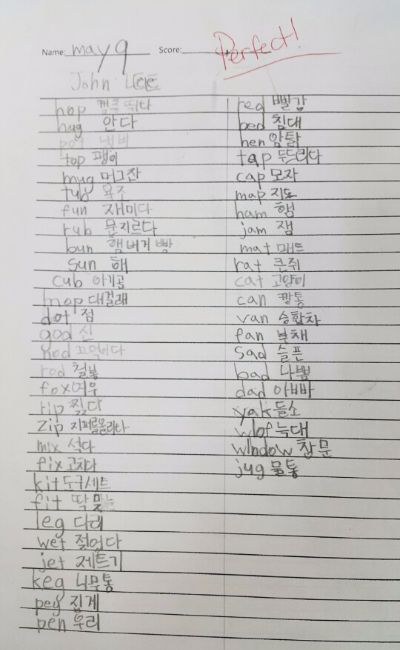 Name: may 9 Score:
Perfect!
John Lee
hop 깡충 뛰다
hug 안다
pot 냄비
top 팽이
mug 머그잔
tub 욕조
fun 재미다
rub 문지르다
bun 햄버거 빵
sun 해
cub 아기곰
mop 대걸레
dot 점
god 신
nod 끄덕이다
rod 철봉
fox 여우
rip 찢다
zip 지퍼를 올리다
mix 섞다
fix 고치다
kit 도구세트
fit 딱 맞는
leg 다리
wet 젖었다
jet 제트기
keg 나무통
peg 집게
pen 우리
red 빨강
bed 침대
hen 암탉
tap 두드리다
cap 모자
map 지도
ham 햄
jam 잼
mat 매트
rat 큰쥐
cat 고양이
can 깡통
van 승합차
fan 부채
sad 슬픈
bad 나쁨
dad 아빠
yak 들소
wlof 늑대
window 창문
jug 물통